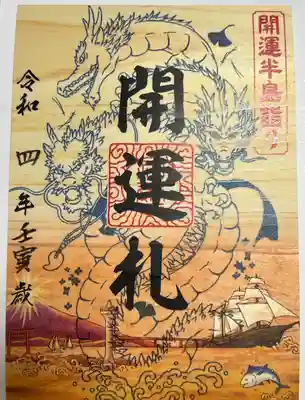 開運半島詣り
開運札
令和四年壬寅歳